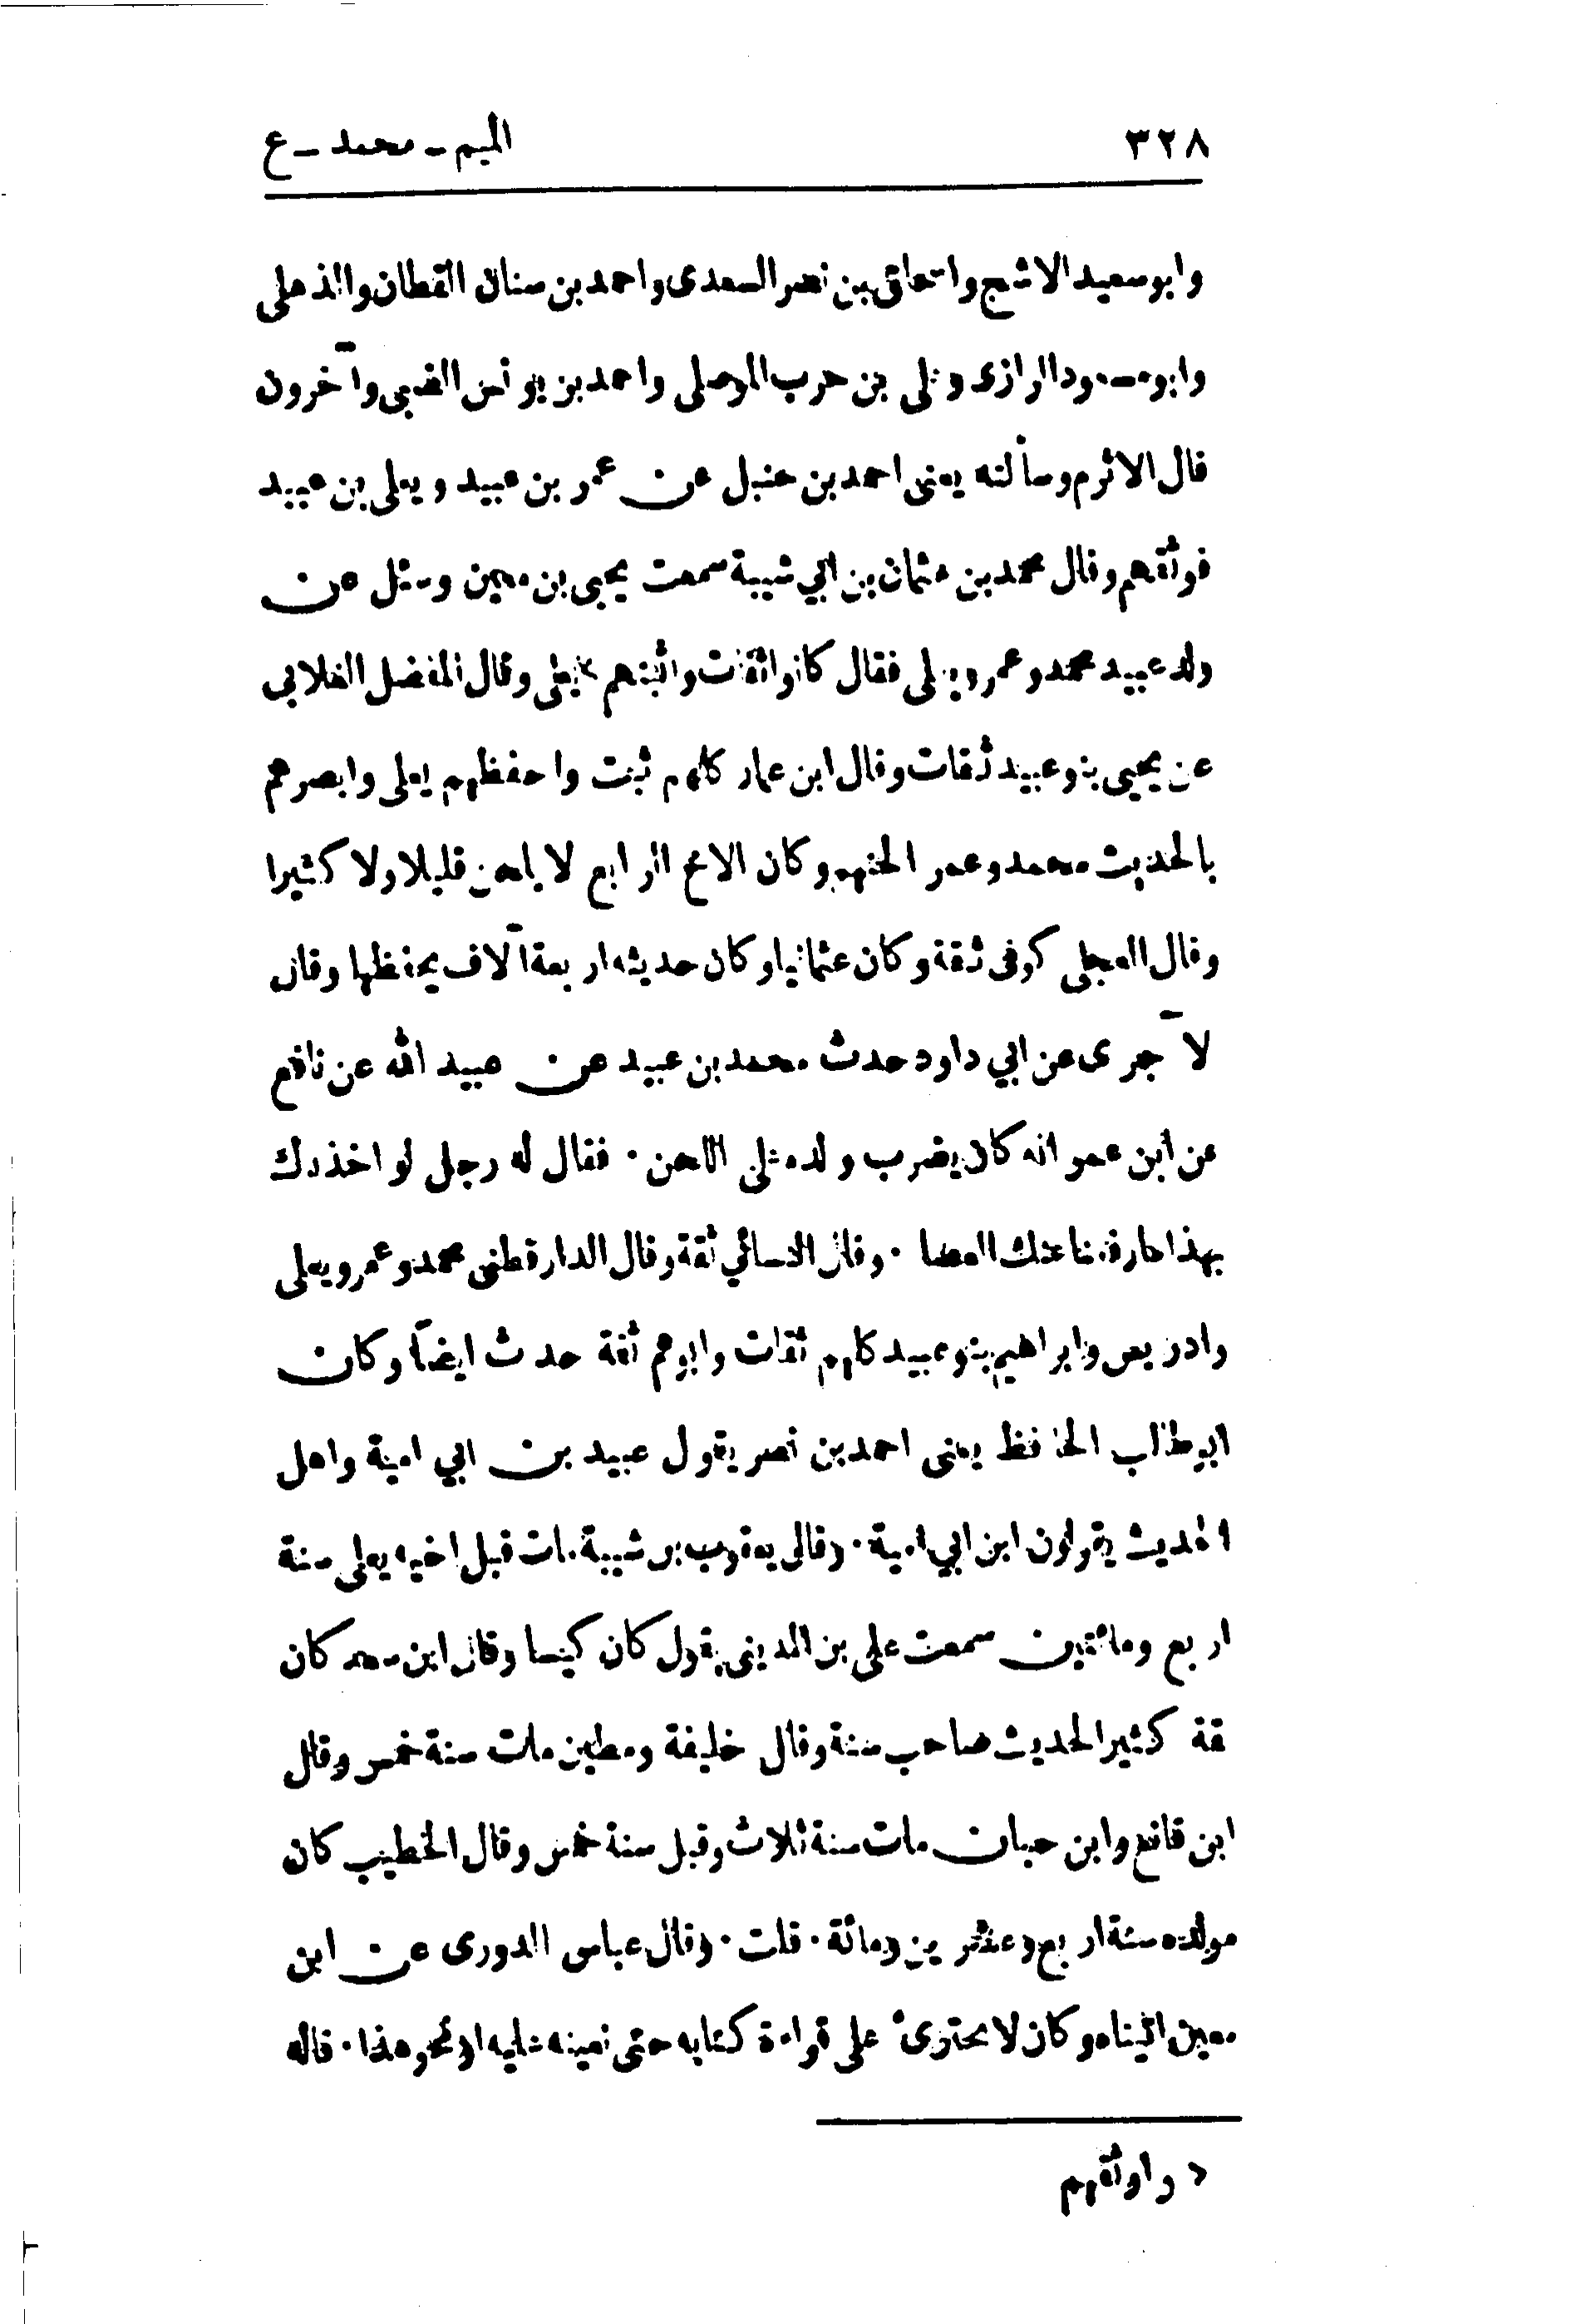 ٣٢٨
الميم - محمد - ع
وابوسعيد الاشج واسحاق بن نصر السعدى واحمد بن سنان القطان والذهلى
وابومسعود الرازى وعلى بن حرب الموصلى واحمد بن يونس الضبى وآخرون
قال الاثرم وسألته يعنى احمد بن حنبل عن عمر بن عبيد ويعلى بن عبيد
فوثقهم وقال محمد بن عثمان بن ابي شيبة سمعت يحيى بن معين وسئل عن
ولد عبيد محمد وعمر ويعلى فقال كانوا ثقات واثبتهم يعلى وقال المفضل الغلابى
عن يحيى بنو عبيد ثقات وقال ابن عمار كلهم ثبت واحفظهم يعلى وابصرهم
بالحديث محمد وعمر وكان الاخ الرابع لا يلحن قليلا ولا كثيرا
وقال العجلى كوفى ثقة وكان عثمانيا وكان حديثه اربعة آلاف يحفظها وقال
لآ جرى عن ابي داود حدث محمد بن عبيد عن عبيد الله عن نافع
عن ابن عمر انه كان يضرب ولده على اللحن ٠ فقال له رجل لو اخذ
بهذا العصا ٠ وقال النسائي ثقة وقال الدارقطنى محمد وعمر ويعلى
وادريس وابراهيم بنو عبيد كلهم ثقات وابوهم ثقة حدث ايضاً وكان
ابو طالب الحافظ يعنى احمد بن نصر يقول عبيد بن ابي امية واهل
الحديث يقولون ابن ابي امية ٠ وقال يعقوب بن شيبة مات قبل اخيه يعلى سنة
اربع ومائتين سمعت على بن المدينى يقول كان كيسا وقال ابن سعد كان
قة كثير الحديث صاحب سنة وقال خليفة ومطين مات سنة خمس وقال
ابن قانع وابن حبان مات سنة ثلاث وقيل سنة خمس وقال الخطيب كان
مولده سنة اربع وعشرين ومائة ٠ قلت ٠ وقال عباس الدورى عن ابن
معين اتيناه وكان لا يجترئ على قراءة كتابه حتى نعينه عليه او نحو هذا ٠ قاله
واوثقهم